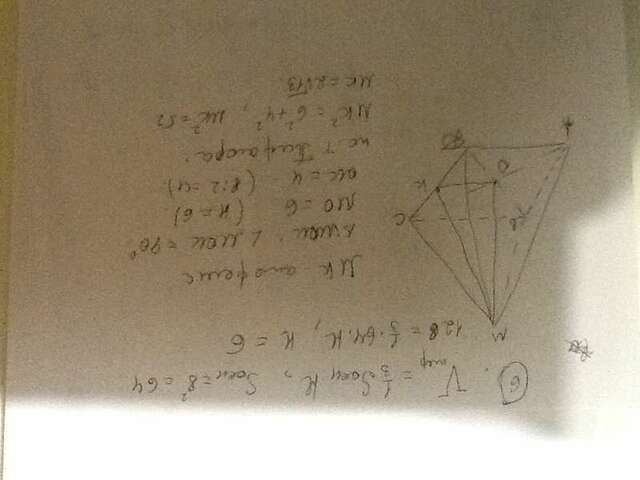 6. Vпир = 1/3 Sосн H, Sосн = 8² = 64
128 = 1/3 · 64 · H, H = 6
MK апофема
Δ MOK. ∠ MOK = 90°
MO = 6 (H = 6)
OK = 4 (8:2 = 4)
по т. Пифагора.
MK² = 6² + 4², MK² = 52
MK = 2√13
M
C
B
K
O
D
A